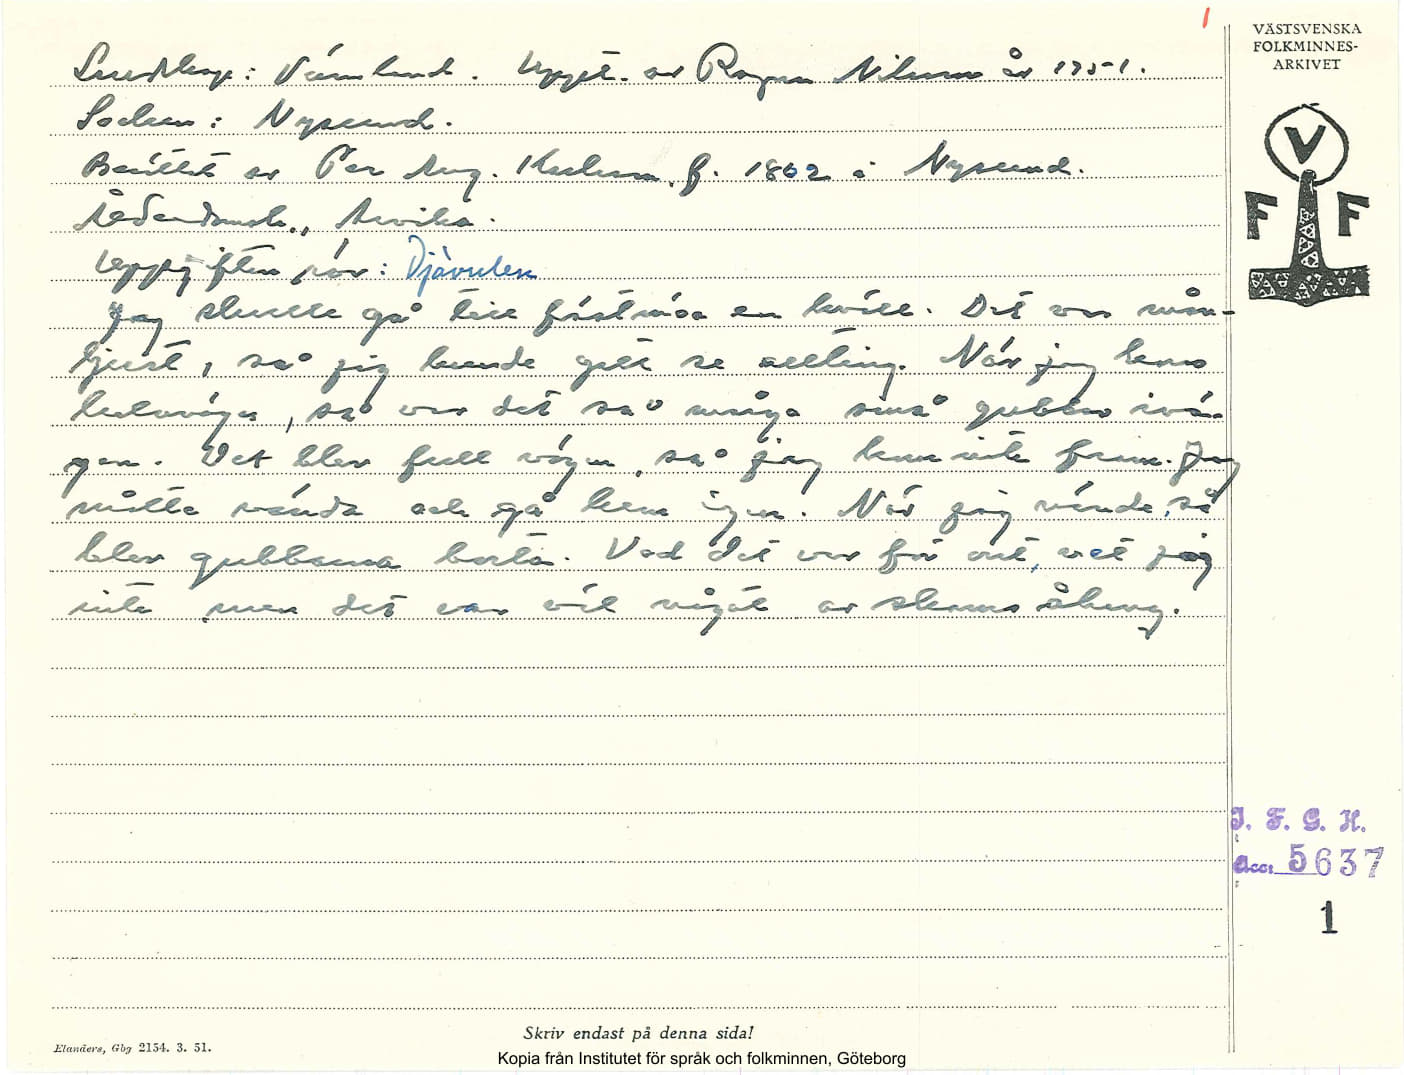 1
VÄSTSVENSKA
FOLKMINNES-
ARKIVET
V
F F
Landskap: Värmland. Uppt. av Ragnar Nilsson år 1951.
Socken: Nysund.
Berättat av Per Aug. Karlsson, f. 1862 i Nysund.
Arvika.
Uppgiften rör: Djävulen
Jag skulle gå till fästmöa en kväll. Det var mån-
ljust, så jag kunde gott se allting. När jag kom
halvvägs, så var det så många små gubbar i vä-
gen. Det blev full vägen, så jag kom inte fram. Jag
måtte vända och gå hem igen. När jag vände, så
blev gubbarna borta. Vad det var för ont, vet jag
inte, men det var väl något av skams åbang.
J. F. G. H.
Acc: 5637
1
Skriv endast på denna sida!
Elanders, Gbg 2154. 3. 51.
Kopia från Institutet för språk och folkminnen, Göteborg